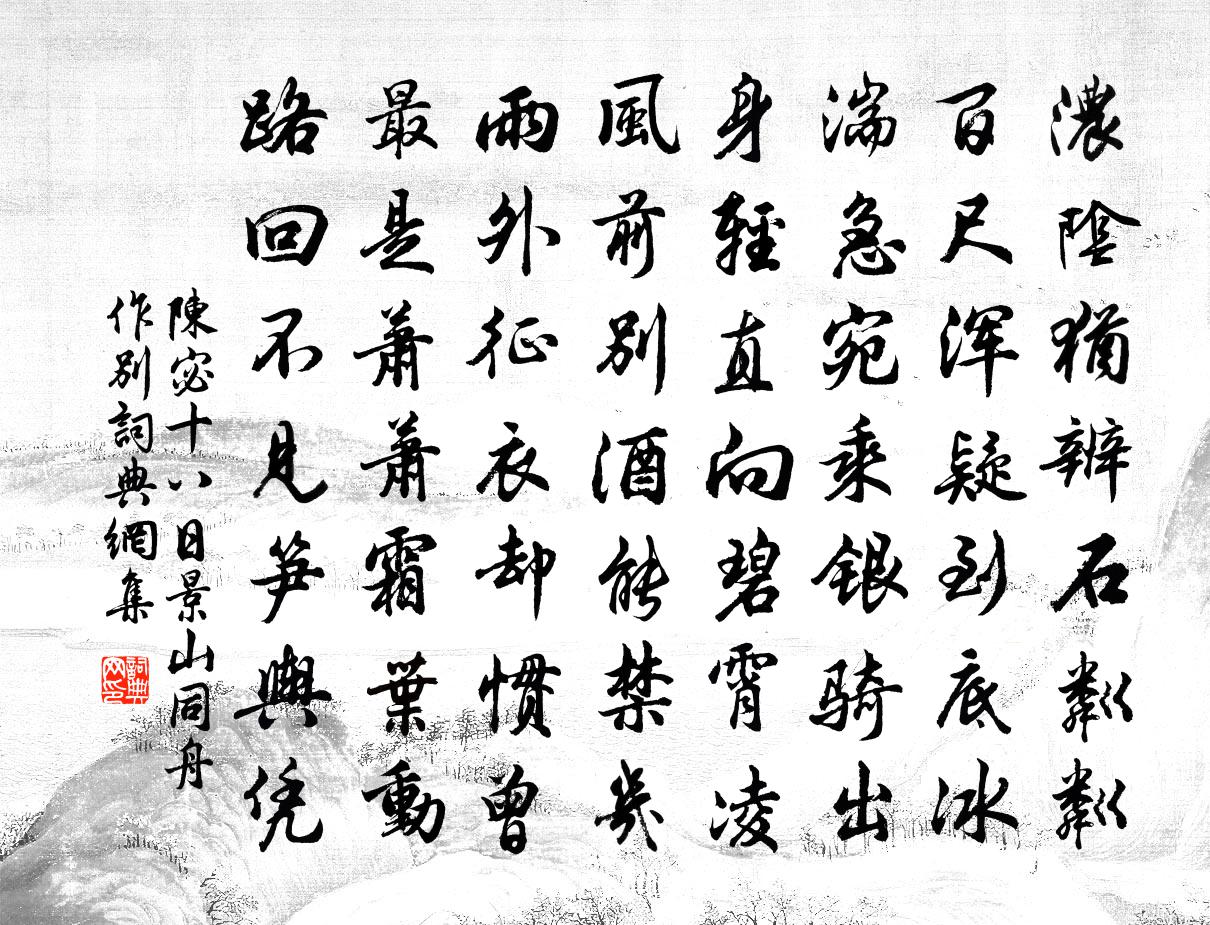 濃陰猶辨石粼粼
百尺渾疑到底冰
湍急宛乘銀騎出
身輕直向碧霄凌
風前別酒能禁幾
雨外征衣却慣曾
最是蕭蕭霜葉動
路回不見笋輿凭
陳宓十八日景山同舟
作別詞典網集
詞典
网印